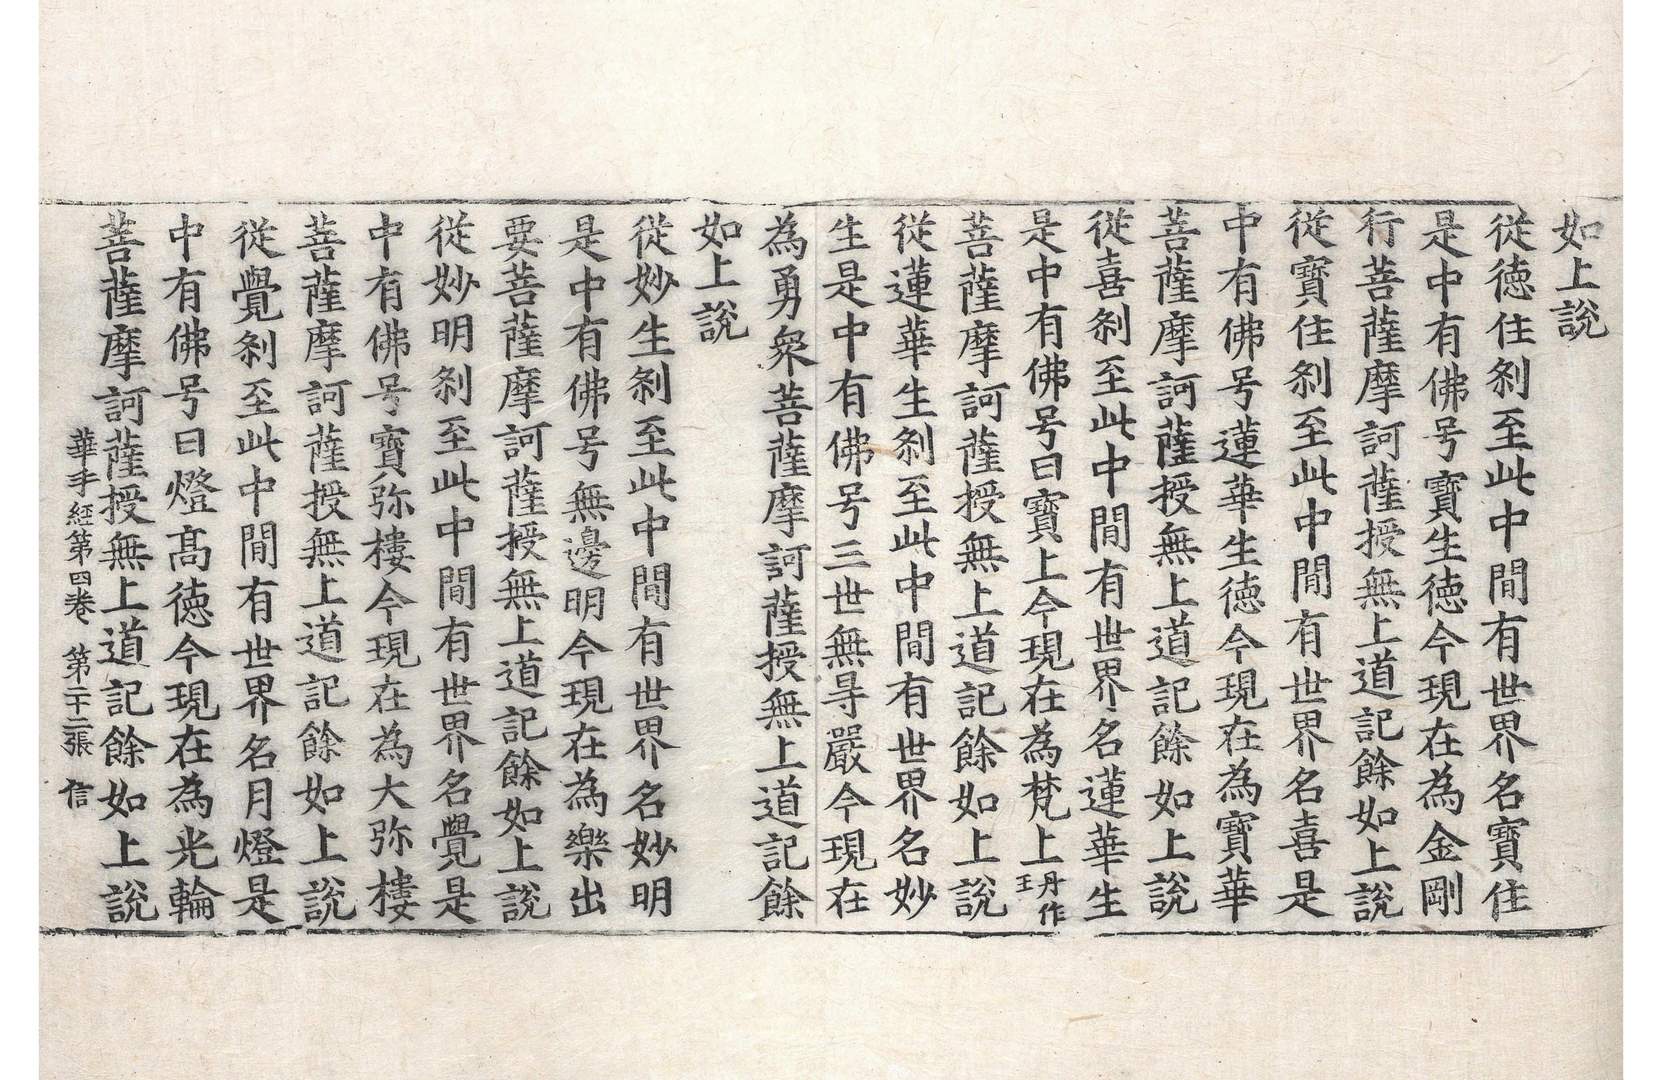 如上說
從德住剎至此中閒有世界名寶住
是中有佛号寶生德今現在為金剛
行菩薩摩訶薩授無上道記餘如上說
從寶住剎至此中閒有世界名喜是
中有佛号蓮華生德今現在為寶華
菩薩摩訶薩授無上道記餘如上說
從喜剎至此中閒有世界名蓮華生
是中有佛号曰寶上今現在為梵上丹作王
菩薩摩訶薩授無上道記餘如上說
從蓮華生剎至此中閒有世界名妙
生是中有佛号三世無㝵嚴今現在
為勇衆菩薩摩訶薩授無上道記餘
如上說
從妙生剎至此中閒有世界名妙明
是中有佛号無邊明今現在為樂出
要菩薩摩訶薩授無上道記餘如上說
從妙明剎至此中閒有世界名覺是
中有佛号寶弥樓今現在為大弥樓
菩薩摩訶薩授無上道記餘如上說
從覺剎至此中閒有世界名月燈是
中有佛号曰燈髙德今現在為光輪
菩薩摩訶薩授無上道記餘如上說
華手經第四卷 第二十二張 信